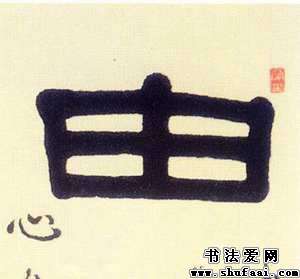 由
心
书法爱网
www.shufaai.com